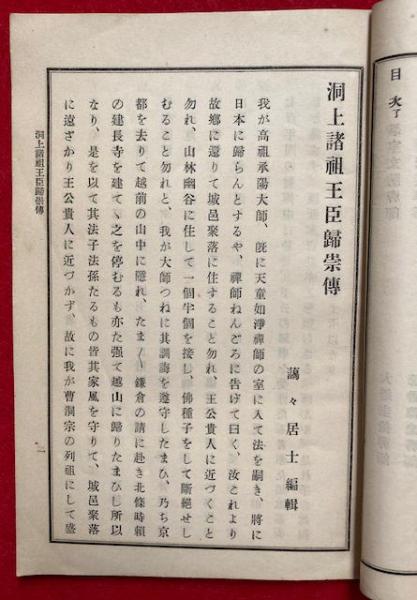 目次了
洞上諸祖王臣歸崇傳
謁々居士編輯
我が高祖承陽大師、旣に天童如淨禪師の室に入て法を嗣き、將に
日本に歸らんとするや、禪師ねんごろに告げて曰く、汝これより
故鄕に還りて城邑聚落に住すること勿れ、王公貴人に近づくこと
勿れ、山林幽谷に住して一個半個を接し、佛種子をして斷絕せし
むること勿れと、我が大師つねに其訓誨を遵守したまひ、乃ち京
都を去りて越前の山中に隱れ、たま〳〵鎌倉の請に赴き北條時賴
の建長寺を建てゝ之を停むるも亦た强て越山に歸りたまひし所以
なり、是を以て其法子法孫たるもの皆其家風を守りて、城邑聚落
に遠ざかり王公貴人に近づかず、故に我が曹洞宗の列祖にして盛
洞上諸祖王臣歸崇傳
一